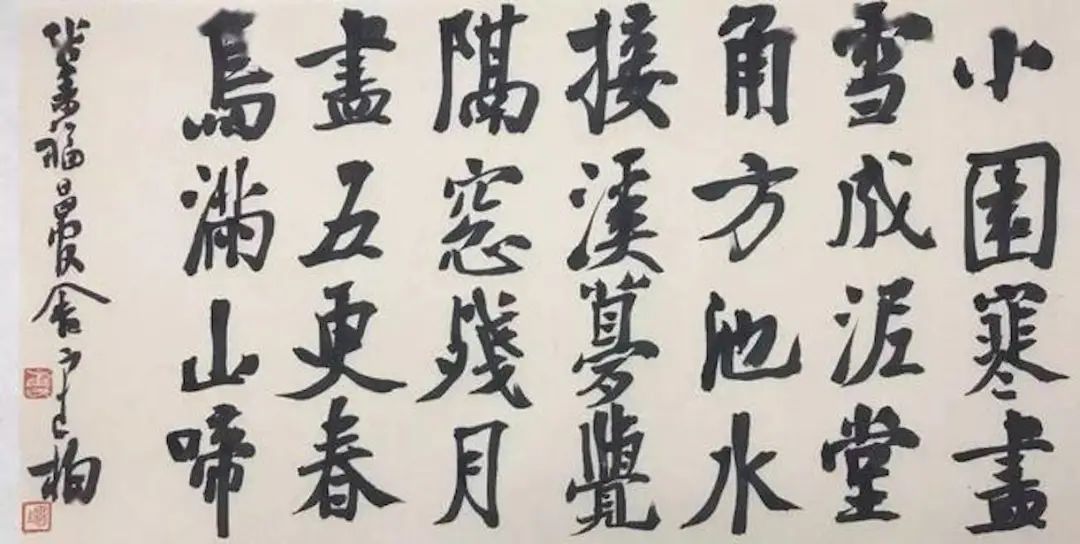 小園寒盡
雪成泥堂
角方池水
接溪夢覺
隔窓殘月
盡五更春
鳥滿山啼